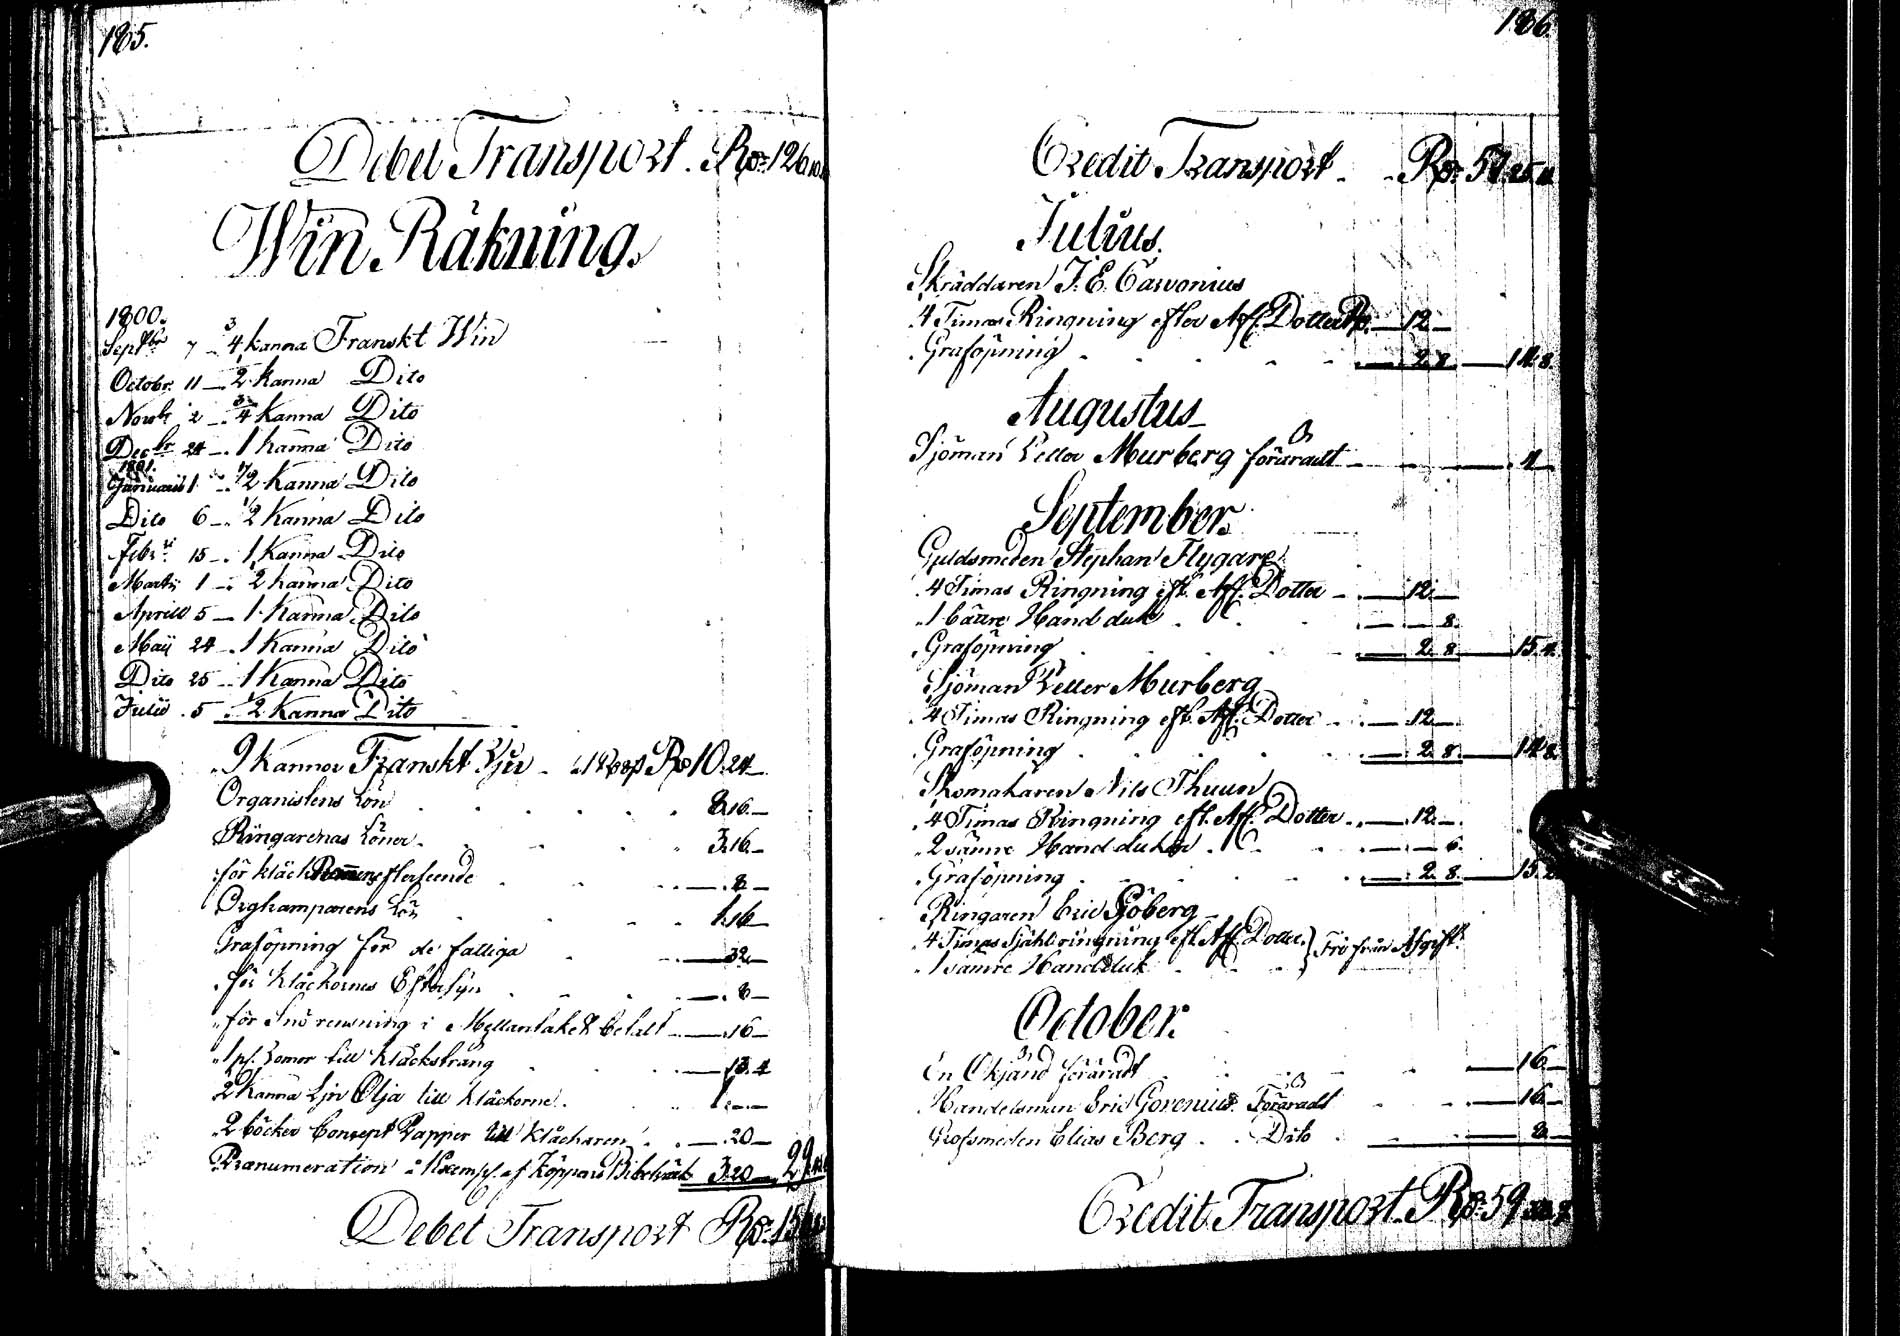 185.
Debet Transport. Rdr 126
Win Räkning.
1800.
Septbr 7 - 3/4 kanna Franskt Win
Octobr. 11 - 2 kanna Dito
Novbr 2 - 3/4 Kanna Dito
Decbr 24 - 1 kanna Dito
1801.
Januarii 1 - 1/2 Kanna Dito
Dito 6 - 1/2 Kanna Dito
Febr. 15 - 1 Kanna Dito
Martii 1 - 2 kanna Dito
Aprill 5 - 1 Kanna Dito
Maij 24 - 1 Kanna Dito
Dito 25 - 1 Kanna Dito
Julii 5 - 1/2 Kanna Dito
9 Kannor Franskt Rd 10.24
Organistens Lön 8.16
Ringarenas Löner 3.16
för kläck efterseende 8
Orgtramparens Lön 1.16
Graföpning för de fattiga 32
för Kläckornas Eftersyn 8
för Snö rensning i betalt 16
1 till Kläcksträng 13.4
2 Kanna Ljn Olja till kläckorne 1
2 böcker Concept Papper till Kläckaren 20
Pranumeration å 1 Exempl. af Köppens Bibelvärk 3.20 29
Debet Transport Rdr 156
186.
Credit Transport Rdr 57.25.11
Julius.
Skräddaren J. E. Carvonius
4 Timas Ringning efter Afl. Dotter Rd. 12
Graföpning 2 8 14 8
Augustus
Sjöman Petter Murberg föräradt 4
September.
Guldsmeden Stephan Flygare
4 Timas Ringning eft. Afl. Dotter 12
1 bättre Handduk 8
Graföpning 2 8 15 4
Sjöman Petter Murberg
4 Timas Ringning eft. Afl. Dotter 12
Graföpning 2 8 14 8
Skomakaren Nils Thuun
4 Timas Ringning eft. Afl. Dotter 12
2 sämre Handdukar 6
Graföpning 2 8 15 2
Ringaren Eric Sjöberg
4 Timas Självringning eft. Afl. Dotter } Fri från Afgift
1 sämre Handduk
October.
En Okjänd föräradt 16
Handelsman Eric Gorenius Föräradt 16
Grofsmeden Elias Berg Dito 8
Credit Transport Rdr 59